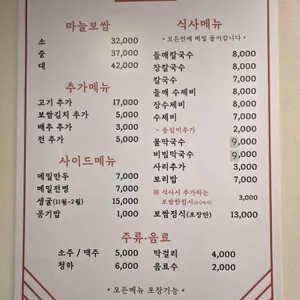 마늘보쌈
소 32,000
중 37,000
대 42,000
추가메뉴
고기 추가 17,000
보쌈김치 추가 5,000
배추 추가 3,000
전 추가 5,000
사이드메뉴
메밀만두 7,000
메밀전병 7,000
생굴(11월-2월) 15,000
공기밥 1,000
식사메뉴
- 모든면에 메밀 들어갑니다 -
들깨칼국수 8,000
장칼국수 8,000
칼국수 7,000
들깨 수제비 8,000
장수제비 8,000
수제비 7,000
- 옹심이추가 2,000
물막국수 9,000
비빔막국수 9,000
사리추가 3,000
보리밥 7,000
※ 식사시 추가하는
보쌈한접시 3,000
보쌈정식(포장만) 13,000
주류.음료
소주 / 맥주 5,000
청하 6,000
막걸리 4,000
음료수 2,000
- 모든메뉴 포장가능 -